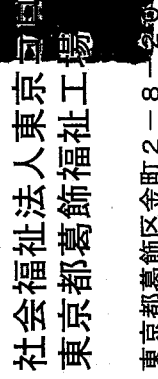 社会福祉法人東京
東京都葛飾福祉工場
東京都葛飾区金町2-8-2